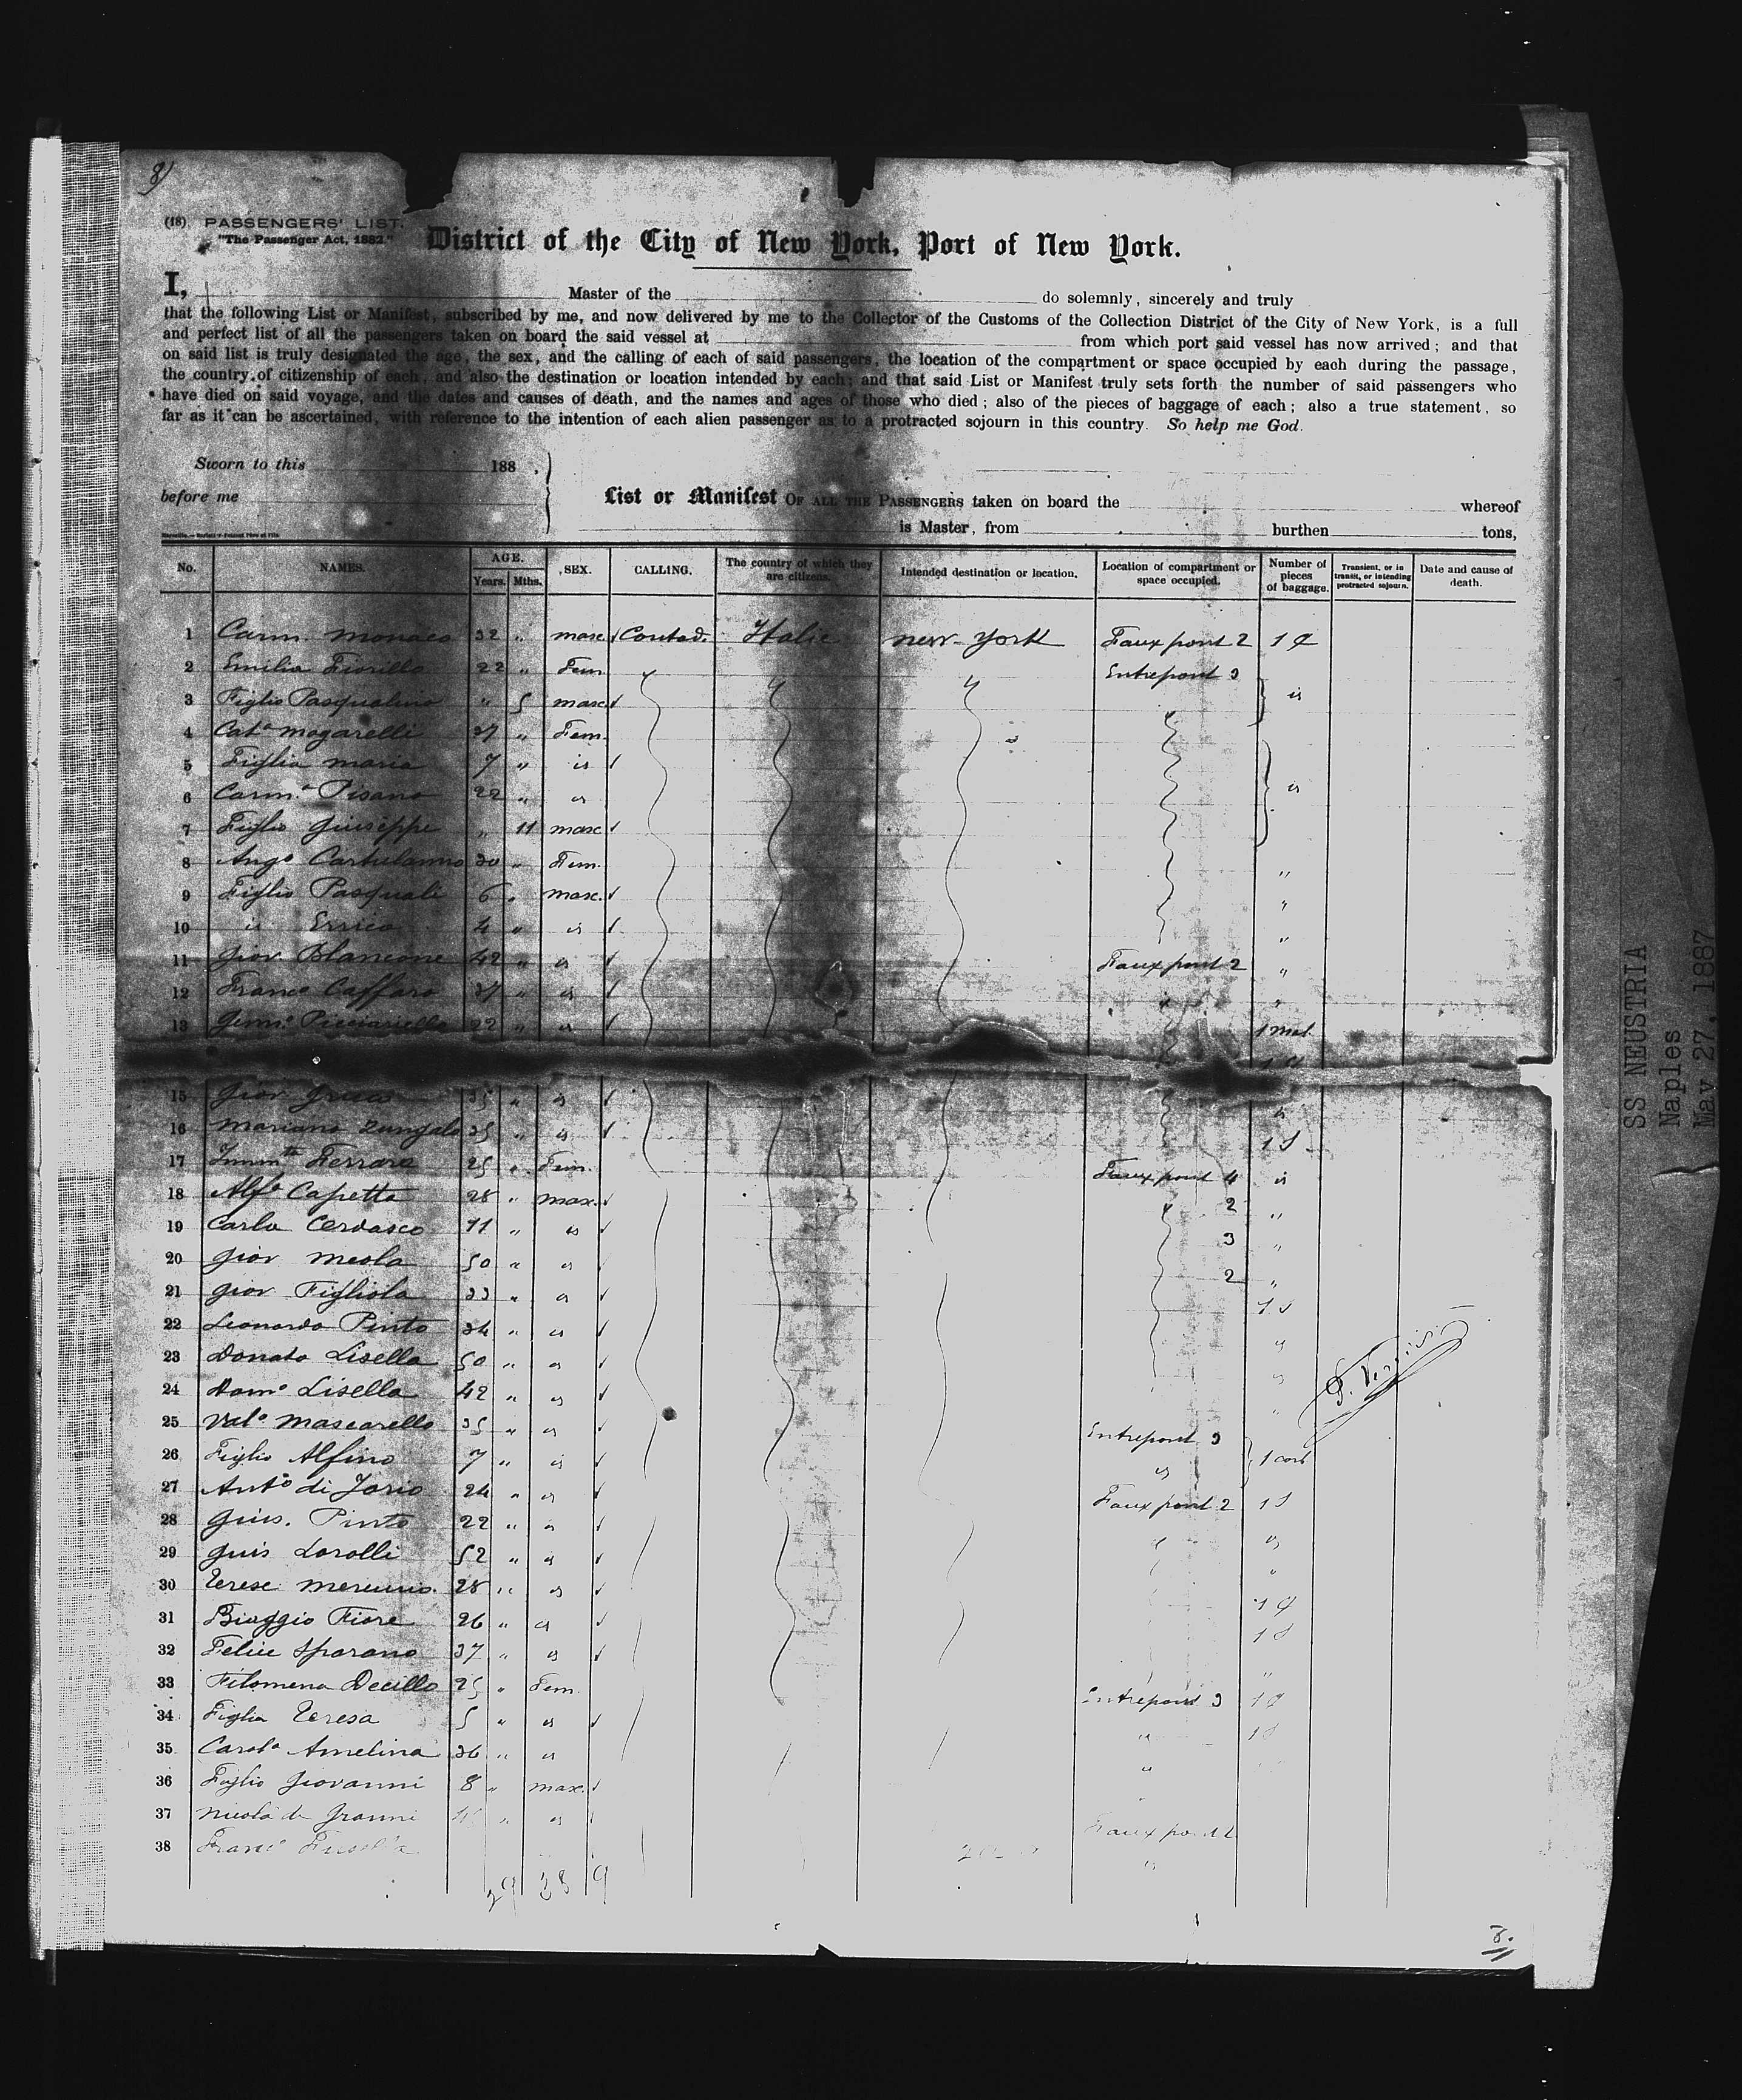 8)
(18) PASSENGERS' LIST.
"The Passenger Act, 1882."
District of the City of New York, Port of New York.
I, Master of the do solemnly, sincerely and truly
that the following List or Manifest, subscribed by me, and now delivered by me to the Collector of the Customs of the Collection District of the City of New York, is a full
and perfect list of all the passengers taken on board the said vessel at from which port said vessel has now arrived; and that
on said list is truly designated the age, the sex, and the calling of each of said passengers, the location of the compartment or space occupied by each during the passage,
the country of citizenship of each, and also the destination or location intended by each; and that said List or Manifest truly sets forth the number of said passengers who
have died on said voyage, and the dates and causes of death, and the names and ages of those who died; also of the pieces of baggage of each; also a true statement, so
far as it can be ascertained, with reference to the intention of each alien passenger as to a protracted sojourn in this country. So help me God.
Sworn to this 188 .
before me
List or Manifest OF ALL THE PASSENGERS taken on board the whereof
is Master, from burthen tons,
No. NAMES. AGE. Years. Mths. SEX. CALLING. The country of which they are citizens. Intended destination or location. Location of compartment or space occupied. Number of pieces of baggage. Transient, or in transit, or intending protracted sojourn. Date and cause of death.
1 Carm. Monaco 32 " masc. Contad. Italie new-york Faux pont 2 1
2 Emilia Fiorillo 22 " Fem. Entrepont 3
3 Figlio Pasqualino " 5 masc. is
4 Cat.a Mogarelli 37 " Fem.
5 Figlia Maria 7 " is
6 Carm.a Pisano 22 " is is
7 Figlio Giuseppe " 11 masc
8 Ang.a 30 " Fem. "
9 Figlio Pasquali 6 " masc. "
10 is Errico 4 " is "
11 Giov Blancone 42 " is Faux pont 2 "
12 Franc.o Caffaro 37 " is "
13 Gem.o Picciariello 22 " is 1 mal.
15 Giov 35 " is is
16 Mariano Zungalo 25 " is 1 S
17 Imm.ta Ferrara 25 " Fem. Faux pont 4 is
18 Alf.o Capetta 28 " masc. 2 "
19 Carlo Cerdasco 11 " is 3 "
20 Giov Meola 50 " is 2 "
21 Giov Figliola 33 " is 1 S
22 Leonardo Pinto 34 " is is
23 Donato Lisella 50 " is is
24 Dom.o Lisella 42 " is "
25 Val.o Mascarello 35 " is Entrepont 3
26 Figlio Alfino 7 " is is 1
27 Ant.o di Iorio 24 " is Faux pont 2 1 S
28 Gius. Pinto 22 " is is
29 Guis Lorolli 52 " is "
30 Terese 28 " is 1
31 Biaggio Fiore 26 " is 1 S
32 Felice Sparano 37 " is "
33 Filomena Decillo 25 " Fem. Entrepont 3 1
34 Figlia Teresa 5 " is " 1 S
35 Carol.a Amelina 36 " is "
36 Figlio Giovanni 8 " masc. "
37 Nicola de Granni " is Faux pont 2
38 Franc.o is
29 38 9
8.
SS NEUSTRIA
Naples
May 27, 1887